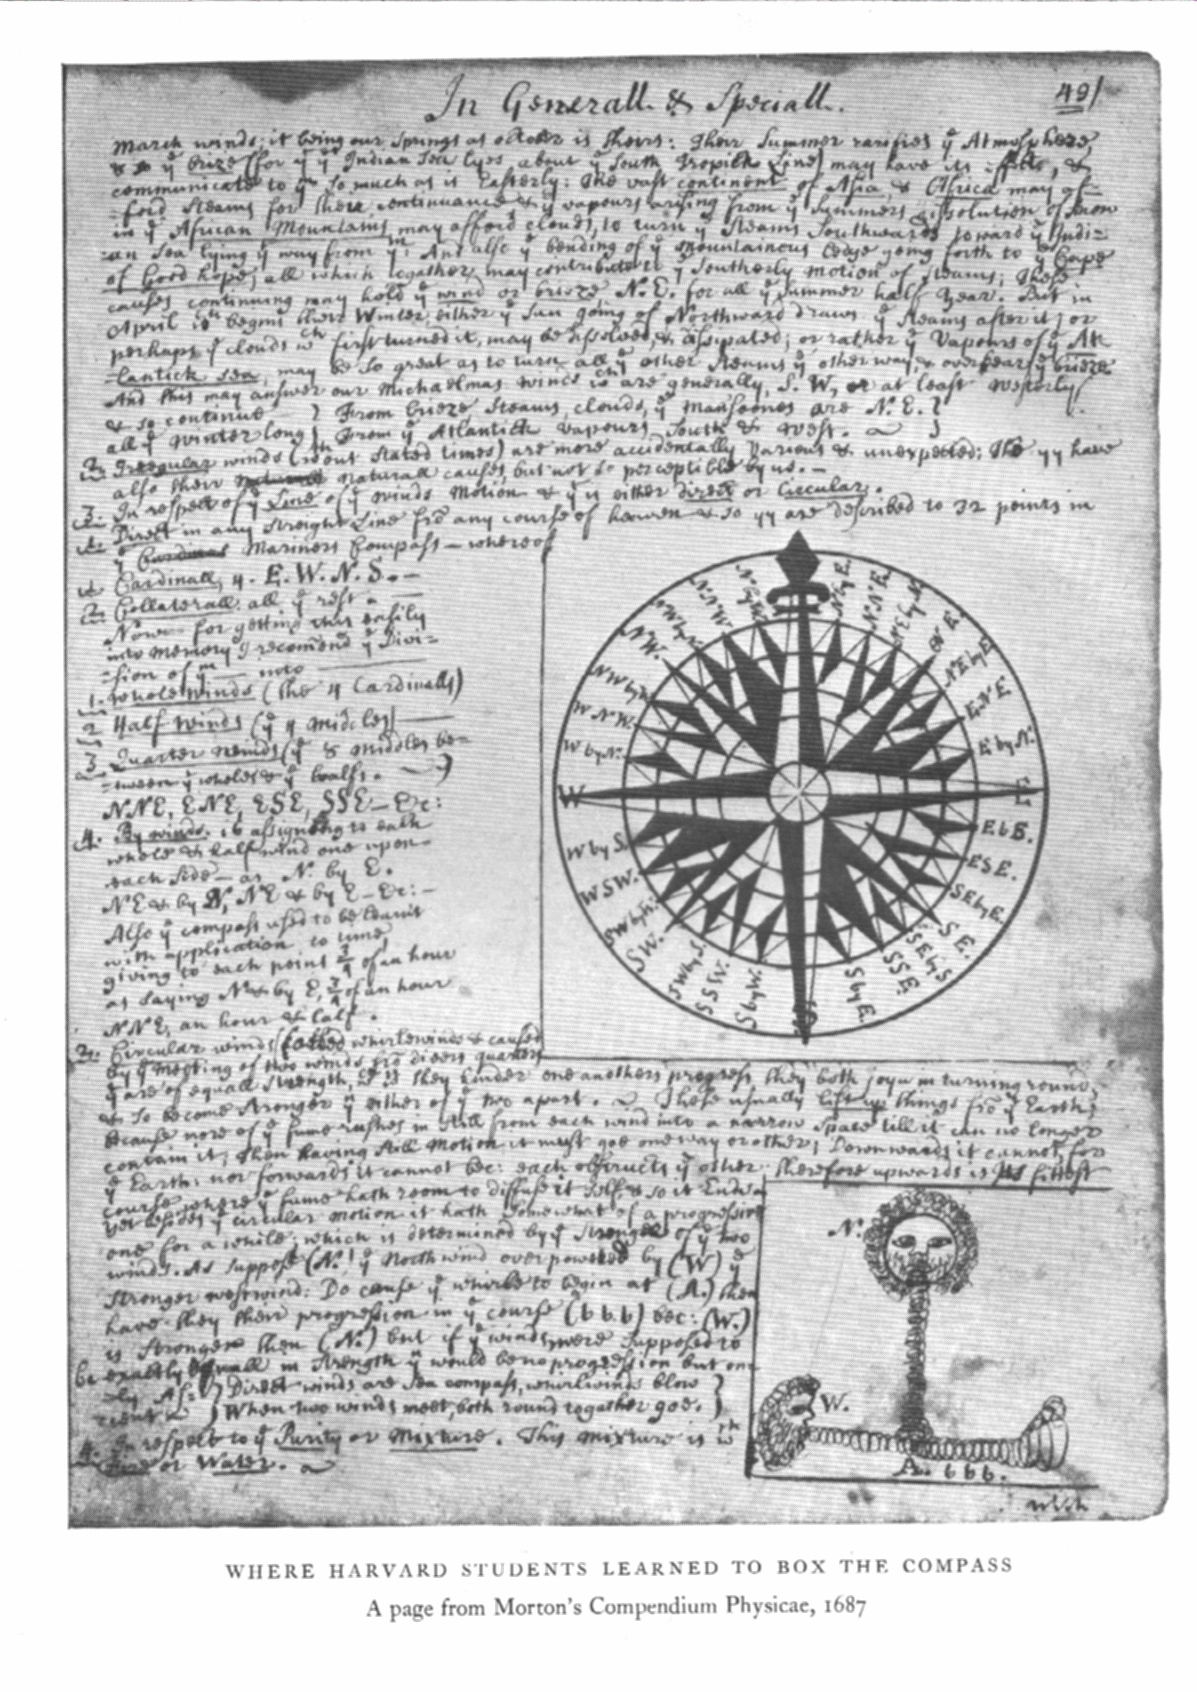 In Generall & Speciall.
49/
March winds; it being our Springs as october is theirs: Their Summer rarifies ye Atmosphere,
ye Brize (for yt ye Indian Sea lyes about ye South Tropick Line) may have its effects, &
communicate to ym so much as is Easterly: The vast continent of Asia, & Africa may af=
=ford Steams for there continuance & ye vapours arising from ye Summers dissolution of snow
in ye African Mountains may afford clouds, to turn ye Steams Southwards toward ye Indi=
=an Sea lying ye way from ym: And also ye bending of ye Mountainous Ledge going forth to ye Cape
of Good hope; all which together may contribute to ye Southerly motion of Steams; These
causes continuing may hold ye wind or brieze N.E. for all ye Summer half Year. But in
April begins their Winter, either ye Sun going of Northward draws ye Steams after it; or
perhaps ye clouds wch first turned it, may be dissolved, & dissipated; or rather ye Vapours of ye At=
=lantick sea, may be so great as to turn all ye other Steams ye other way, & overbear ye brieze
And this may answer our Michaelmas winds wch are generally, S.W, or at least Westerly
& so continue } From brieze, Steams, clouds, ye Mansoones are N.E. }
all ye Winter long } From ye Atlantick vapours South & West. }
2. Irregular winds (without stated times) are more accidentally Various & unexpected; Tho yy have
also their naturall causes, but not so perceptible by us. -
3. In respect of ye Line of ye winds Motion & yt is either direct or Circular.
1. Direct in any streight Line frō any course of heaven & so yy are described to 32 points in
ye Mariners Compass - whereof
1. Cardinall, 4. E. W. N. S. -
2. Collaterall. all ye rest.
Now for getting this easily
into memory I recomend ye Divi=
=sion of ym into
1. whole winds (the 4 Cardinalls)
2 Half winds (ye 4 middles)
3 Quarter winds (ye 8 middles be=
=tween ye wholes & ye halfs.
NNE, ENE, ESE, SSE - &c:
4. By winds. 16 assigning to each
whole & half wind one upon
each side - as N. by E.
NE & by N, NE & by E - &c: -
Also ye compass used to be learnt
with application to time
giving to each point 3/4 of an hour
as saying N & by E, 3/4 of an hour
NNE, an hour & half.
N by E.
NNE.
NE by N.
NE.
NE by E.
ENE
E by N.
E
E b S.
ESE.
SE by E.
SE.
SE by S
SSE.
S by E.
S
S by W.
SSW.
SW by S.
SW.
SW by W.
WSW.
W by S.
W
W by N.
WNW.
NW by W.
NW.
NW by N.
NNW.
N by W.
2. Circular winds called whirlewinds & caused
by ye meeting of two winds frō divers quarters
yt are of equall strength, they hinder one anothers progress, they both joyn in turning round,
& so become stronger yn either of ye two apart. These usually lift up things frō ye Earth;
Because more of ye fume rushes in still from each wind into a narrow space till it can no longer
contain it; then having still Motion it must goe one way or other; Downwards it cannot, for
ye Earth: nor forwards it cannot bec: each obstructs ye other therefore upwards is its fittest
course where ye fume hath room to diffuse it self, & so it Ends
yet besides ye circular motion it hath somewhat of a progressive
one for a while; which is determined by ye strongest of ye two
winds. As suppose (N.) ye North wind overpowered by (W) ye
Stronger westwind: Do cause ye whirle to begin at (A.) then
have they their progression in ye course (b b b) bec: (W.)
is Stronger then (N.) but if ye winds were supposed to
be exactly equall in Strength yr would be no progression but
} Direct winds are Sea compass, whirlwinds blow }
} When two winds meet, both round togather goe. }
4. In respect to ye Purity or Mixture. This mixture is wth
Fire or Water.
N.
W.
A. b b b.
WHERE HARVARD STUDENTS LEARNED TO BOX THE COMPASS
A page from Morton's Compendium Physicae, 1687